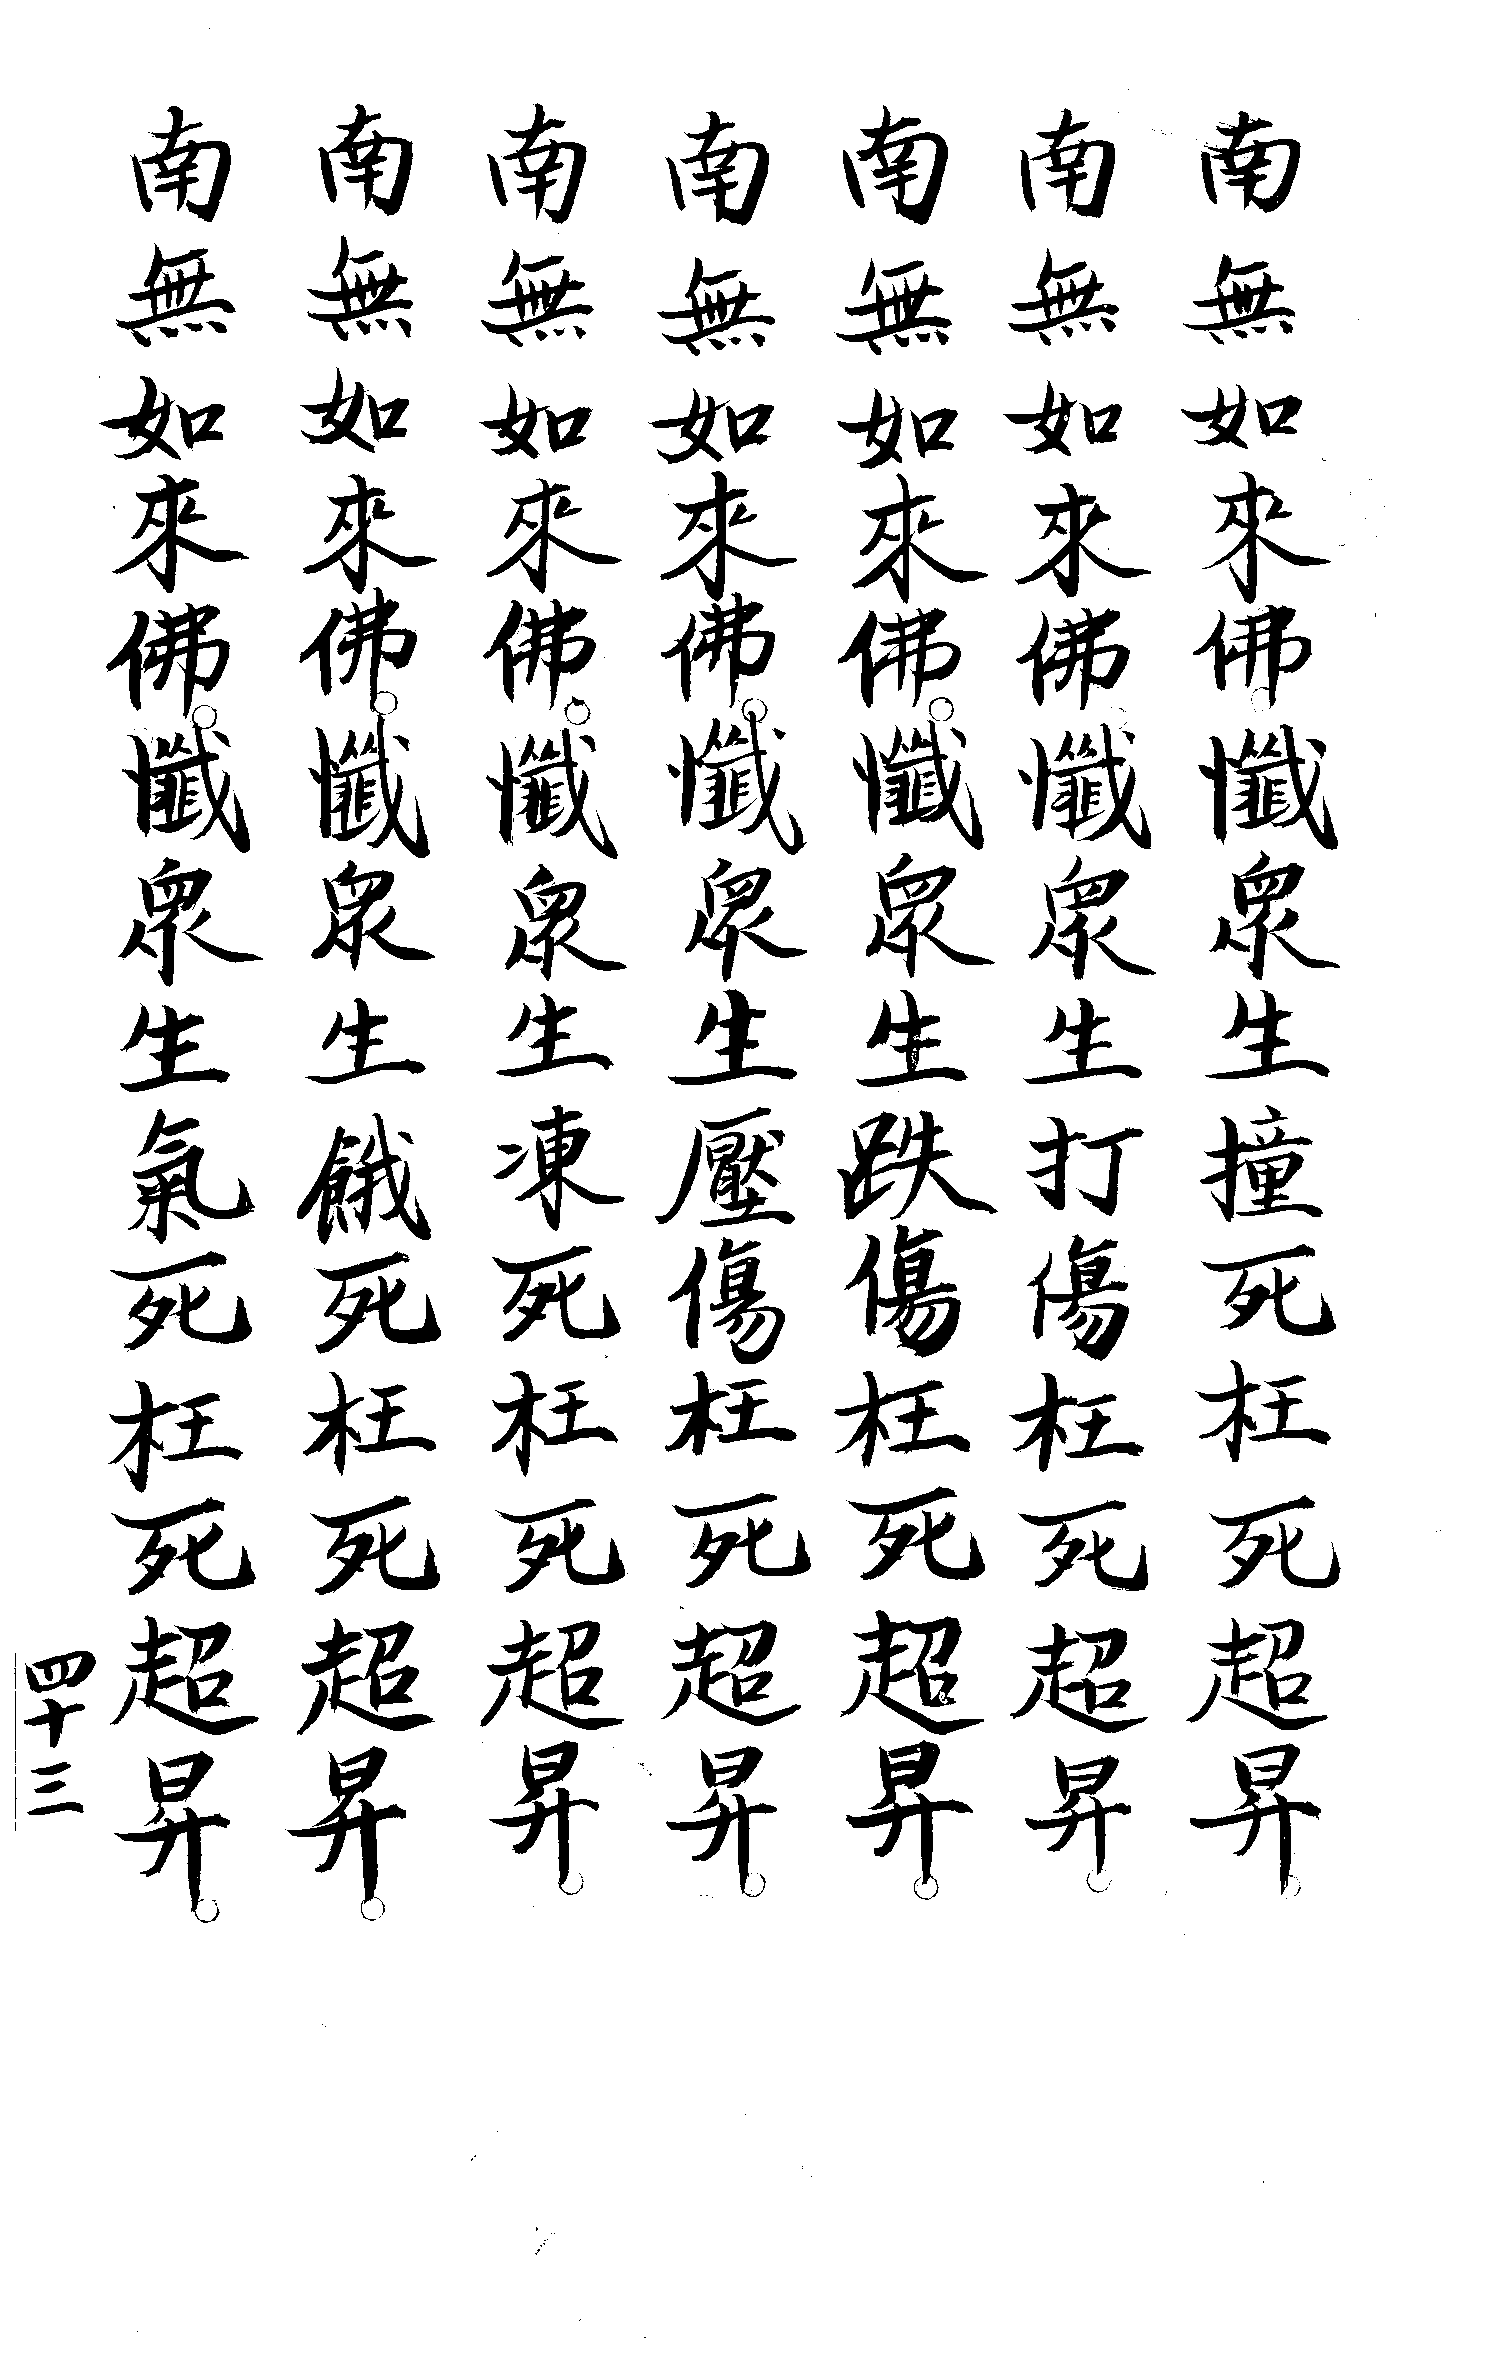 南無如來佛。懺眾生撞死枉死超昇。
南無如來佛。懺眾生打傷枉死超昇。
南無如來佛。懺眾生跌傷枉死超昇。
南無如來佛。懺眾生壓傷枉死超昇。
南無如來佛。懺眾生凍死枉死超昇。
南無如來佛。懺眾生餓死枉死超昇。
南無如來佛。懺眾生氣死枉死超昇。
四十三